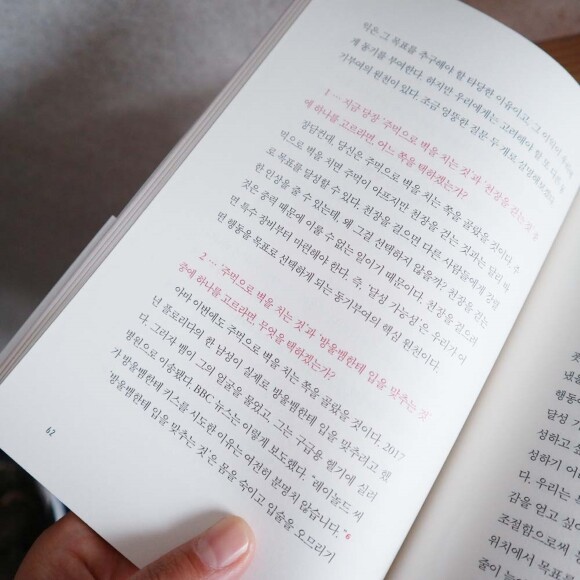 익은 그 목표를 추구해야 할 타당한 이유이고, 그 이익이
제 동기를 부여한다. 하지만 우리에게는 고려해야 할 또
기부여의 원천이 있다. 조금 엉뚱한 질문 두 개로 설명해보겠다.
1 … 지금 당장 '주먹으로 벽을 치는 것'과 '천장을 걷는 것' 중
에 하나를 고르라면, 어느 쪽을 택하겠는가?
장담컨대, 당신은 주먹으로 벽을 치는 쪽을 골랐을 것이다. 주
먹으로 벽을 치면 주먹이 아프지만 천장을 걷는 것과는 달리 때
로 목표를 달성할 수 있다. 천장을 걸으면 다른 사람들에게 강렬
한 인상을 줄 수 있는데, 왜 그걸 선택하지 않을까? 천장을 걷는
것은 중력 때문에 이룰 수 없는 일이기 때문이다. 천장을 걸으려
면 특수 장비부터 마련해야 한다. 즉, '달성 가능성'은 우리가 어
떤 행동을 목표로 선택하게 되는 동기부여의 핵심 원천이다.
2 … '주먹으로 벽을 치는 것'과 '방울뱀한테 입을 맞추는 것'
중에 하나를 고르라면, 무엇을 택하겠는가?
아마 이번에도 주먹으로 벽을 치는 쪽을 골랐을 것이다. 2017
년 플로리다의 한 남성이 실제로 방울뱀한테 입을 맞추려고 했
다. 그러자 뱀이 그의 얼굴을 물었고, 그는 구급용 헬기에 실려
병원으로 이송됐다. BBC 뉴스는 이렇게 보도했다. "레이놀드 씨
가 방울뱀한테 키스를 시도한 이유는 여전히 분명치 않습니다."6
방울뱀한테 입을 맞추는 것'은 몸을 숙이고 입술을 오므리기
62
냈을
행동
달성 가
성하고 소
성하기 어
다. 우리는
감을 얻고 싶어
조절함으로써
위치에서 목표를
줄이 늘